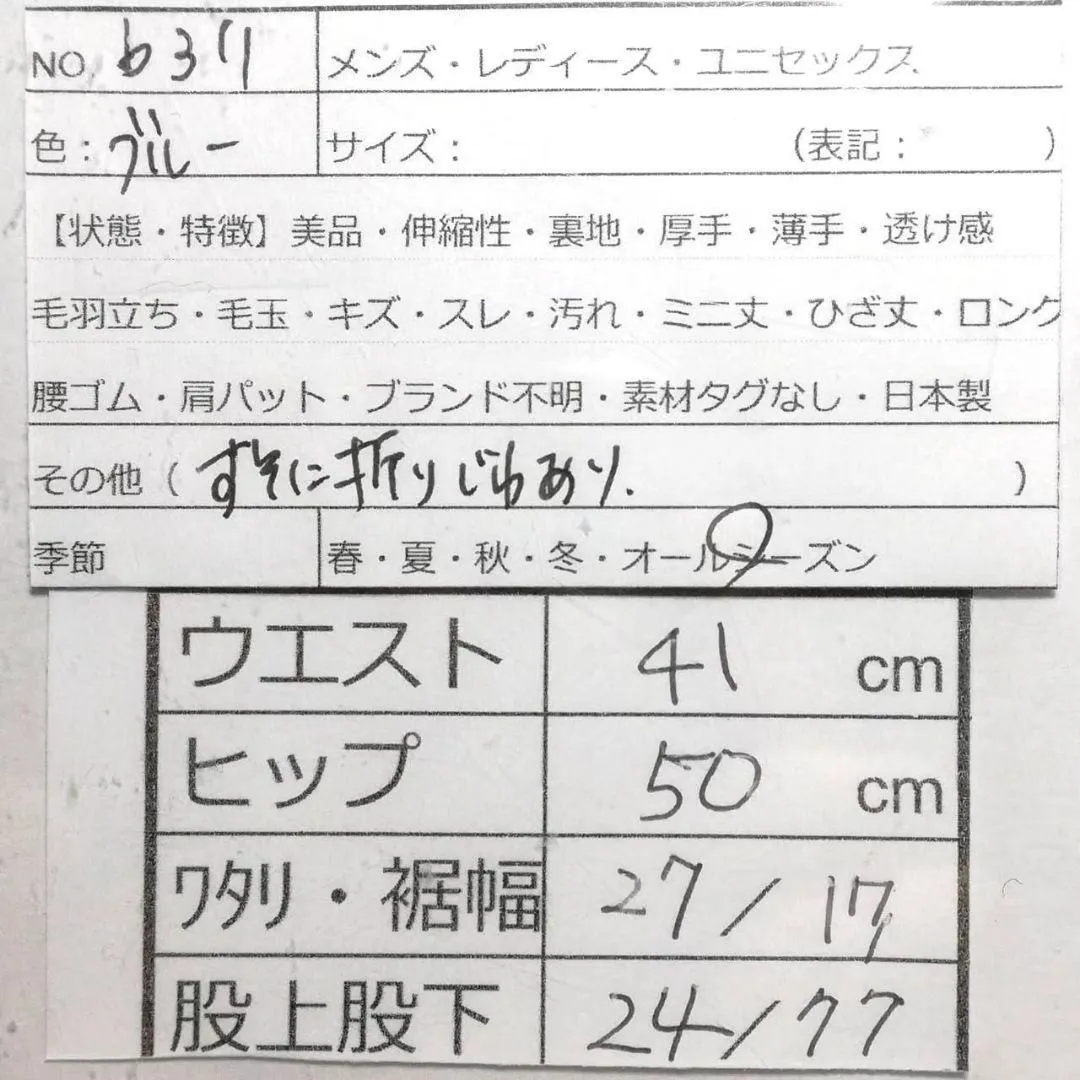 NO. b391
メンズ・レディース・ユニセックス
色：ブルー
サイズ： （表記： ）
【状態・特徴】美品・伸縮性・裏地・厚手・薄手・透け感
毛羽立ち・毛玉・キズ・スレ・汚れ・ミニ丈・ひざ丈・ロング
腰ゴム・肩パット・ブランド不明・素材タグなし・日本製
その他（ すそに折りじわあり. ）
季節
春・夏・秋・冬・オールシーズン
ウエスト 41 cm
ヒップ 50 cm
ワタリ・裾幅 27/17
股上股下 24/77